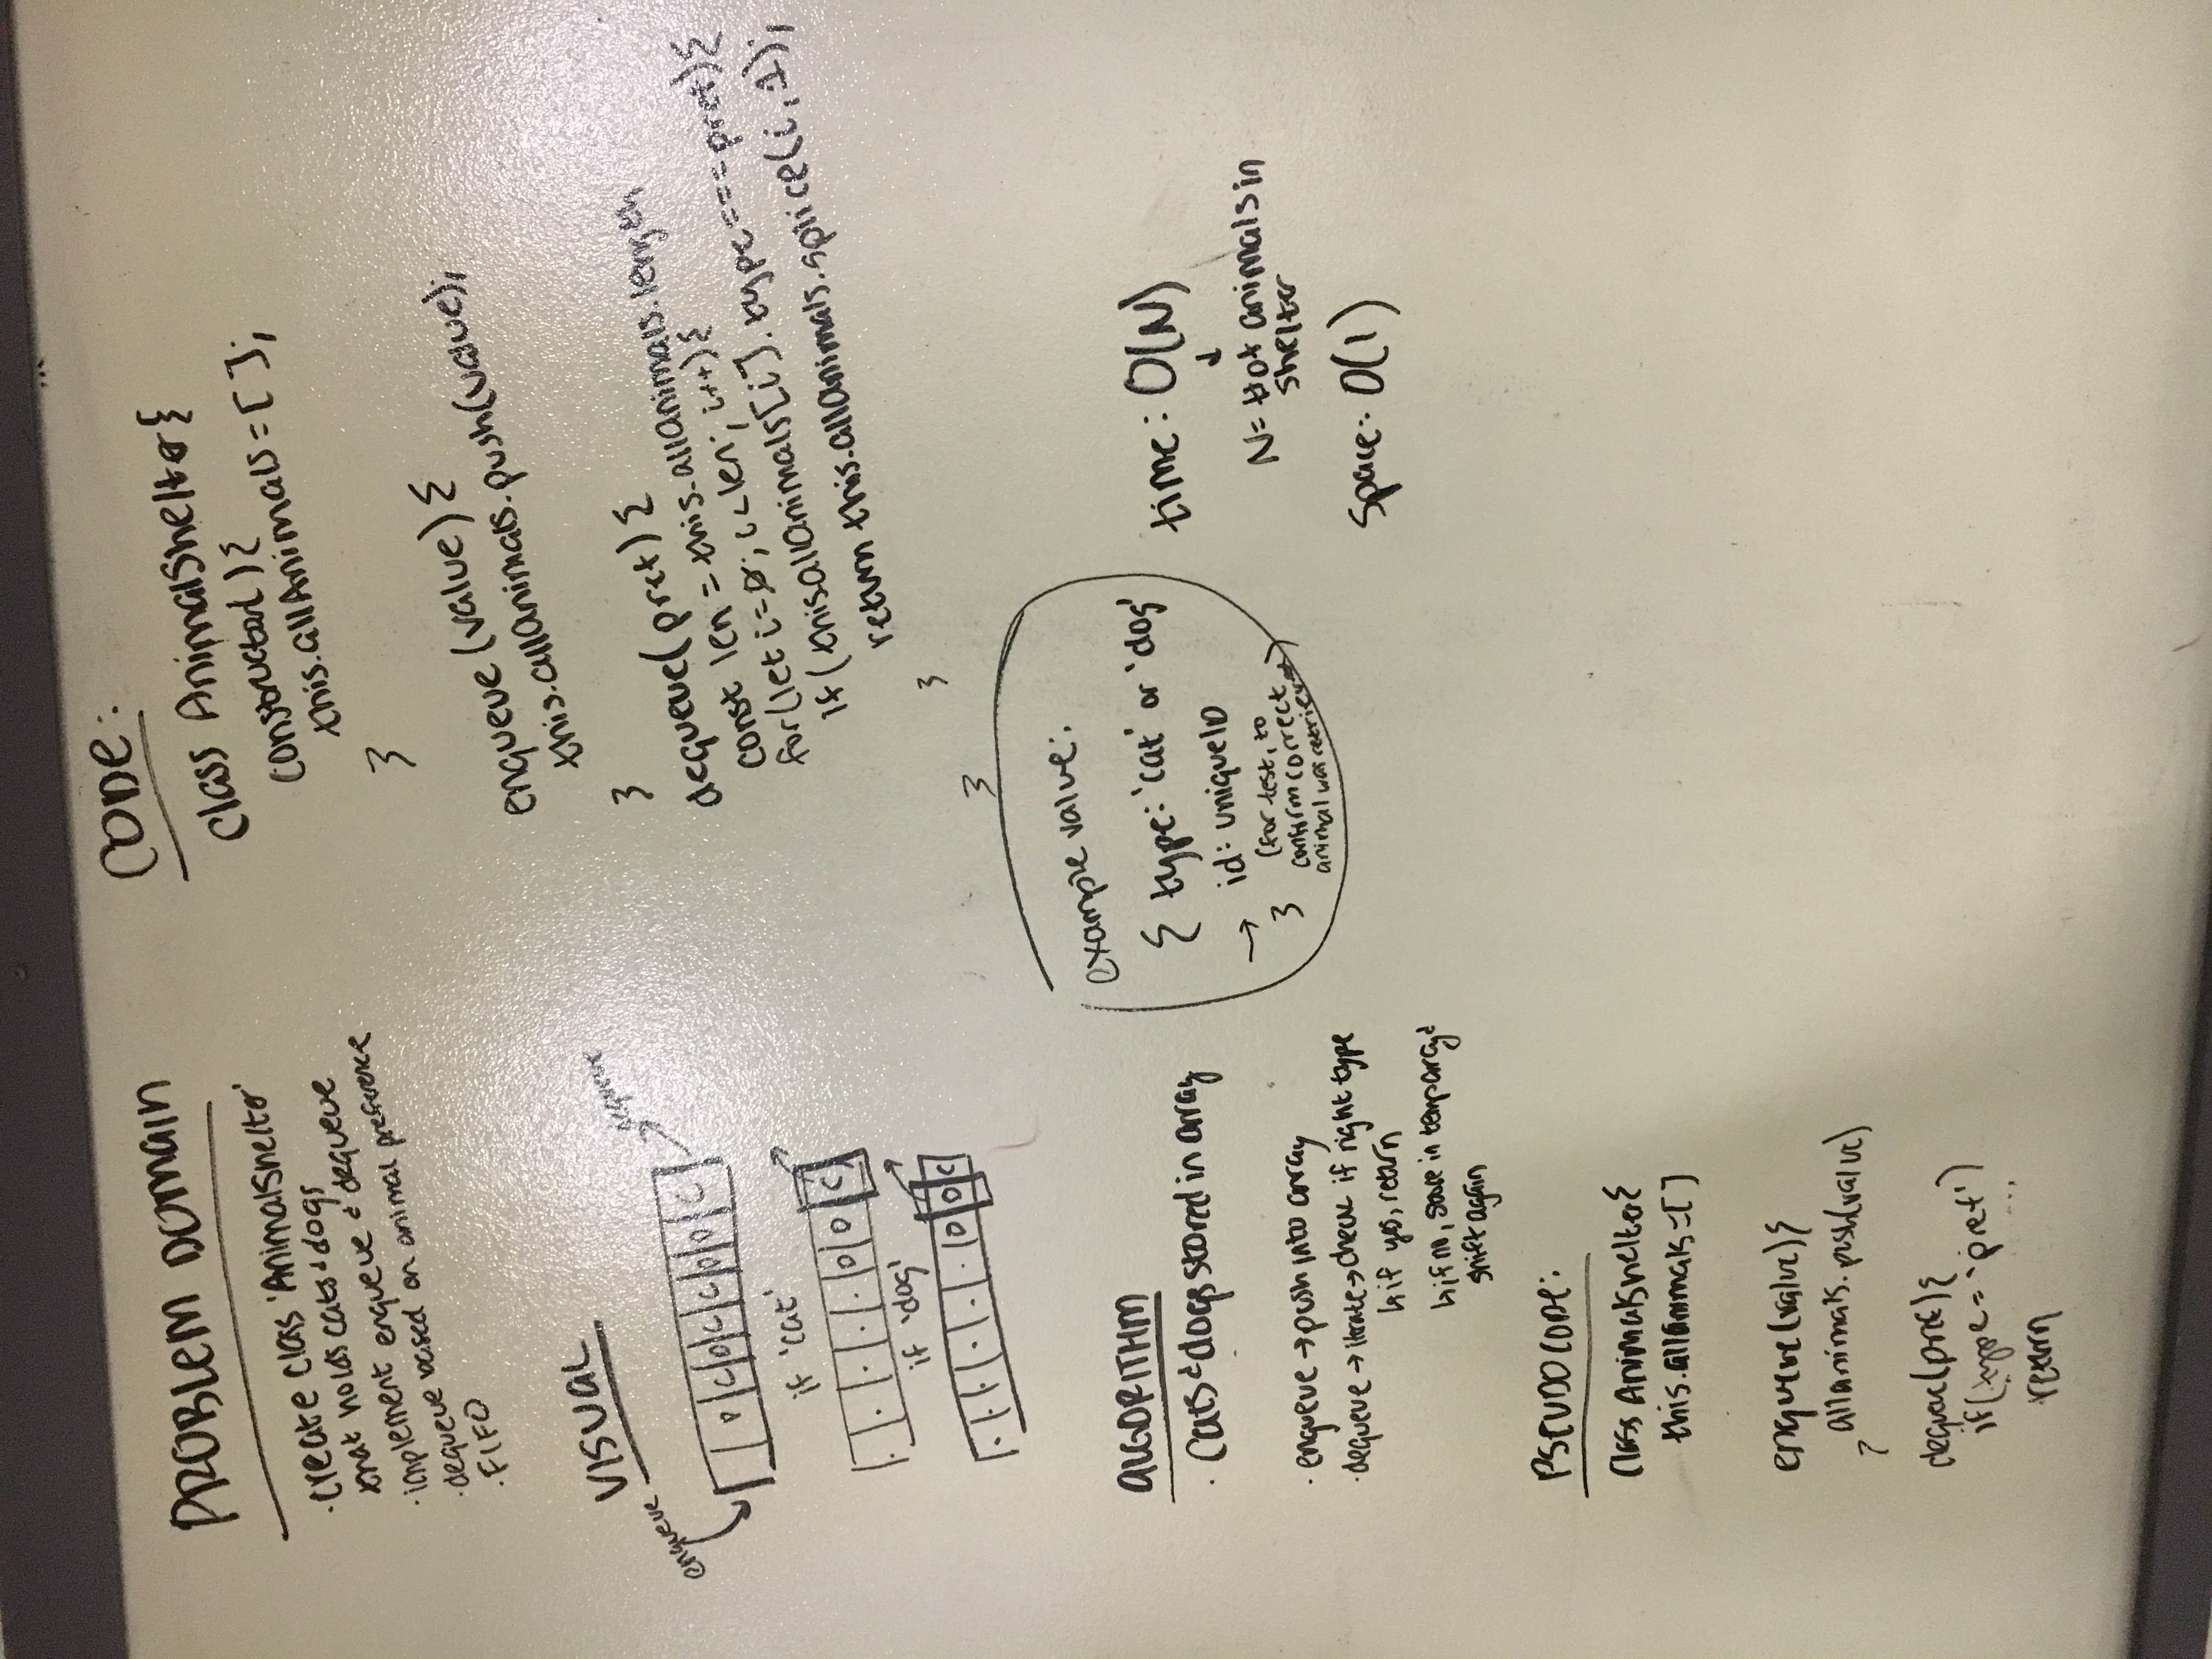 PROBLEM DOMAIN
· create class 'AnimalShelter'
that holds cats & dogs
· implement enqueue & dequeue
· dequeue based on animal preference
· FIFO
VISUAL
enqueue
dequeue
D C D C C D D C
if 'cat'
. . . . . D D C
if 'dog'
. . . . . . D D C
ALGORITHM
· cats & dogs stored in array
· enqueue → push into array
· dequeue → itrate → check if right type
↳ if yes, return
↳ if no, store in temp array &
shift again
PSEUDOCODE:
class AnimalShelter{
this.allanimals=[]
enqueue(value){
allanimals.push(value)
}
dequeue(pref){
if(type = 'pref')
...
return
CODE:
class AnimalShelter{
constructor(){
this.allAnimals = [ ];
}
enqueue (value) {
this.allAnimals.push(value);
}
dequeue( pref) {
const len = this.allAnimals.length
for(let i=0; i<len; i++){
if (this.allAnimals[i].type===pref){
return this.allAnimals.splice(i, 1);
}
}
example value:
{ type: 'cat' or 'dog'
→ id: uniqueID
(for test, to
confirm correct
animal was retrieved)
}
time: O(N)
↓
N= # of animals in
shelter
Space: O(1)